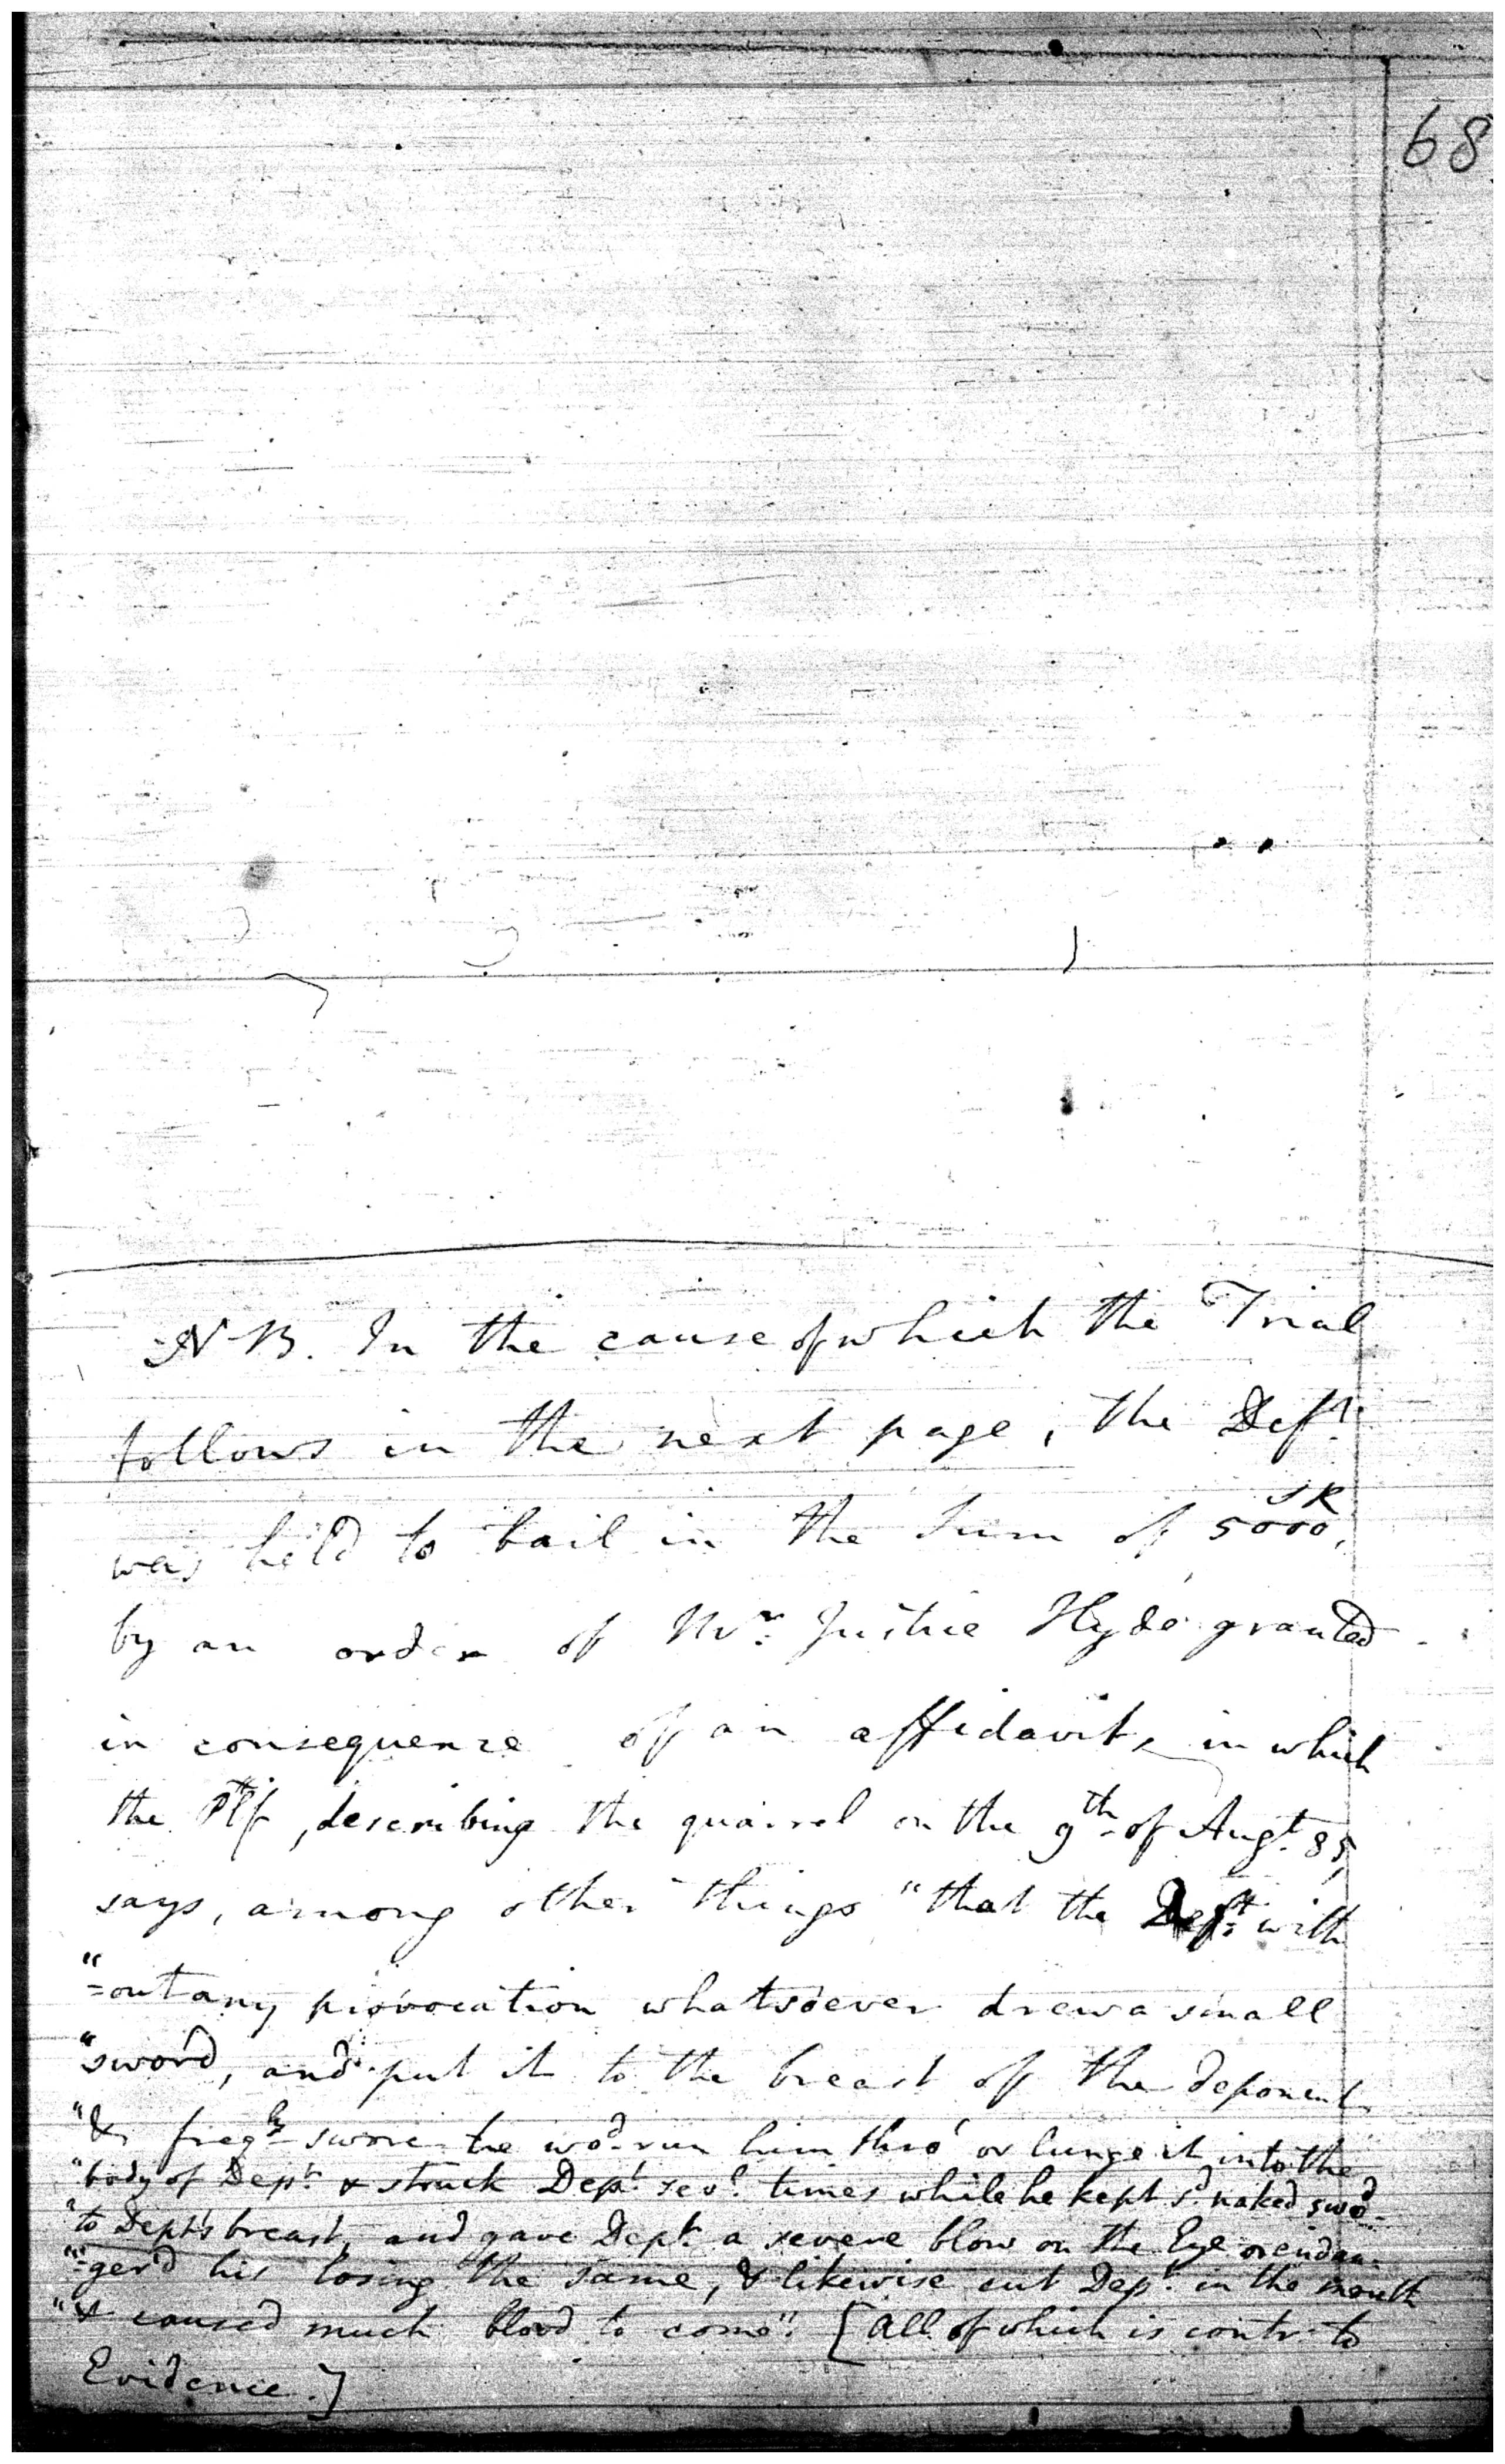 68
N B. In the cause of which the Trial
follows in the next page, the Deft.
was held to bail in the Sum of 5000, SR
by an order of Mr. Justice Hyde granted
in consequence of an affidavit, in which
the Pltf, describing the quarrel on the 9th of Augt. 85,
says, among other things "that the Deft. with
"=out any provocation whatsoever drew a small
"sword, and put it to the breast of the deponent
"& freqly swore he wod. run him thro' or lunge it into the
"body of Dept. & struck Dept. sevl. times while he kept sd. naked swod.
"to Dept's breast, and gave Dept. a severe blow on the Eye & endan=
"=ger'd his losing the same, & likewise cut Dept. in the mouth
"& caused much blood to come". [All of which is contr. to
Evidence.]